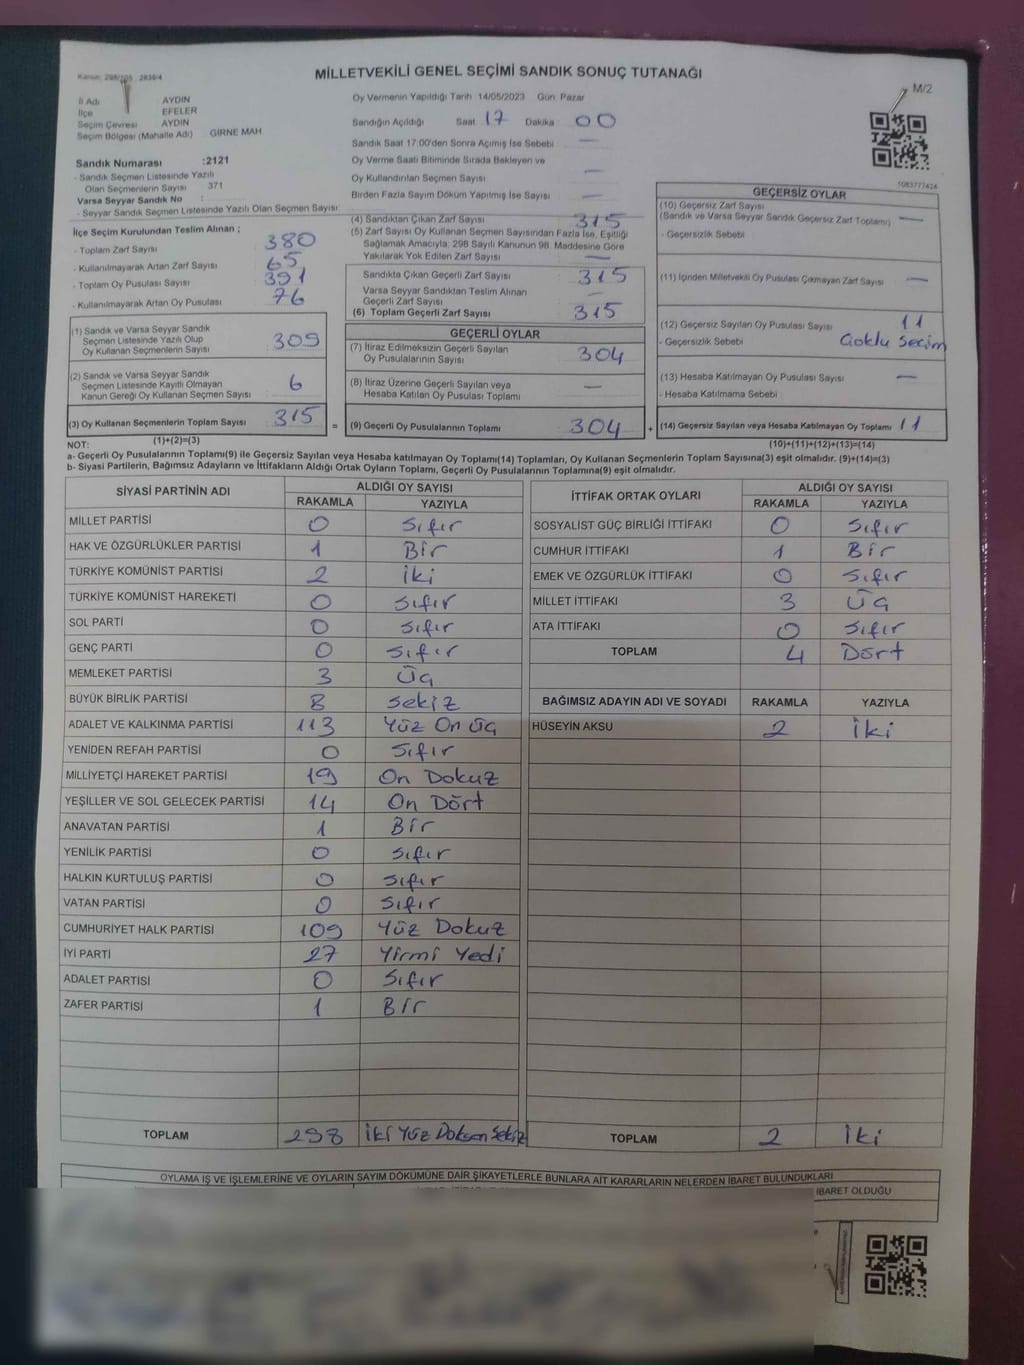 Kanun: 298/105 2839/4
MİLLETVEKİLİ GENEL SEÇİMİ SANDIK SONUÇ TUTANAĞI
M/2
İl Adı AYDIN
İlçe EFELER
Seçim Çevresi AYDIN
Seçim Bölgesi (Mahalle Adı) GİRNE MAH
Sandık Numarası :2121
- Sandık Seçmen Listesinde Yazılı
Olan Seçmenlerin Sayısı 371
Varsa Seyyar Sandık No :
- Seyyar Sandık Seçmen Listesinde Yazılı Olan Seçmen Sayısı:
İlçe Seçim Kurulundan Teslim Alınan ;
- Toplam Zarf Sayısı 380
- Kullanılmayarak Artan Zarf Sayısı 65
- Toplam Oy Pusulası Sayısı 391
- Kullanılmayarak Artan Oy Pusulası 76
(1) Sandık ve Varsa Seyyar Sandık
Seçmen Listesinde Yazılı Olup
Oy Kullanan Seçmenlerin Sayısı 309
(2) Sandık ve Varsa Seyyar Sandık
Seçmen Listesinde Kayıtlı Olmayan
Kanun Gereği Oy Kullanan Seçmen Sayısı 6
(3) Oy Kullanan Seçmenlerin Toplam Sayısı 315
=
Oy Vermenin Yapıldığı Tarih :14/05/2023 Gün: Pazar
Sandığın Açıldığı Saat 17 Dakika 00
Sandık Saat 17:00'den Sonra Açımış İse Sebebi —
Oy Verme Saati Bitiminde Sırada Bekleyen ve
Oy Kullandırılan Seçmen Sayısı —
Birden Fazla Sayım Döküm Yapılmış İse Sayısı —
(4) Sandıktan Çıkan Zarf Sayısı 315
(5) Zarf Sayısı Oy Kullanan Seçmen Sayısından Fazla İse, Eşitliği
Sağlamak Amacıyla; 298 Sayılı Kanunun 98. Maddesine Göre
Yakılarak Yok Edilen Zarf Sayısı —
Sandıkta Çıkan Geçerli Zarf Sayısı 315
Varsa Seyyar Sandıktan Teslim Alınan
Geçerli Zarf Sayısı —
(6) Toplam Geçerli Zarf Sayısı 315
GEÇERLİ OYLAR
(7) İtiraz Edilmeksizin Geçerli Sayılan
Oy Pusulalarının Sayısı 304
(8) İtiraz Üzerine Geçerli Sayılan veya
Hesaba Katılan Oy Pusulası Toplamı —
(9) Geçerli Oy Pusulalarının Toplamı 304
+
1083777424
GEÇERSİZ OYLAR
(10) Geçersiz Zarf Sayısı
(Sandık ve Varsa Seyyar Sandık Geçersiz Zarf Toplamı) —
- Geçersizlik Sebebi
(11) İçinden Milletvekili Oy Pusulası Çıkmayan Zarf Sayısı —
(12) Geçersiz Sayılan Oy Pusulası Sayısı 11
- Geçersizlik Sebebi Çoklu Seçim
(13) Hesaba Katılmayan Oy Pusulası Sayısı —
- Hesaba Katılmama Sebebi
(14) Geçersiz Sayılan veya Hesaba Katılmayan Oy Toplamı 11
NOT: (1)+(2)=(3) (10)+(11)+(12)+(13)=(14)
a- Geçerli Oy Pusulalarının Toplamı(9) ile Geçersiz Sayılan veya Hesaba katılmayan Oy Toplamı(14) Toplamları, Oy Kullanan Seçmenlerin Toplam Sayısına(3) eşit olmalıdır. (9)+(14)=(3)
b- Siyasi Partilerin, Bağımsız Adayların ve İttifakların Aldığı Ortak Oyların Toplamı, Geçerli Oy Pusulalarının Toplamına(9) eşit olmalıdır.
SİYASİ PARTİNİN ADI ALDIĞI OY SAYISI
RAKAMLA YAZIYLA
MİLLET PARTİSİ 0 Sıfır
HAK VE ÖZGÜRLÜKLER PARTİSİ 1 Bir
TÜRKİYE KOMÜNİST PARTİSİ 2 İki
TÜRKİYE KOMÜNİST HAREKETİ 0 Sıfır
SOL PARTİ 0 Sıfır
GENÇ PARTİ 0 Sıfır
MEMLEKET PARTİSİ 3 Üç
BÜYÜK BİRLİK PARTİSİ 8 Sekiz
ADALET VE KALKINMA PARTİSİ 113 Yüz On Üç
YENİDEN REFAH PARTİSİ 0 Sıfır
MİLLİYETÇİ HAREKET PARTİSİ 19 On Dokuz
YEŞİLLER VE SOL GELECEK PARTİSİ 14 On Dört
ANAVATAN PARTİSİ 1 Bir
YENİLİK PARTİSİ 0 Sıfır
HALKIN KURTULUŞ PARTİSİ 0 Sıfır
VATAN PARTİSİ 0 Sıfır
CUMHURİYET HALK PARTİSİ 109 Yüz Dokuz
İYİ PARTİ 27 Yirmi Yedi
ADALET PARTİSİ 0 Sıfır
ZAFER PARTİSİ 1 Bir
TOPLAM 298 İki Yüz Doksan Sekiz
İTTİFAK ORTAK OYLARI ALDIĞI OY SAYISI
RAKAMLA YAZIYLA
SOSYALİST GÜÇ BİRLİĞİ İTTİFAKI 0 Sıfır
CUMHUR İTTİFAKI 1 Bir
EMEK VE ÖZGÜRLÜK İTTİFAKI 0 Sıfır
MİLLET İTTİFAKI 3 Üç
ATA İTTİFAKI 0 Sıfır
TOPLAM 4 Dört
BAĞIMSIZ ADAYIN ADI VE SOYADI RAKAMLA YAZIYLA
HÜSEYİN AKSU 2 İki
TOPLAM 2 İki
OYLAMA İŞ VE İŞLEMLERİNE VE OYLARIN SAYIM DÖKÜMÜNE DAİR ŞİKAYETLERLE BUNLARA AİT KARARLARIN NELERDEN İBARET BULUNDUKLARI
İBARET OLDUĞU